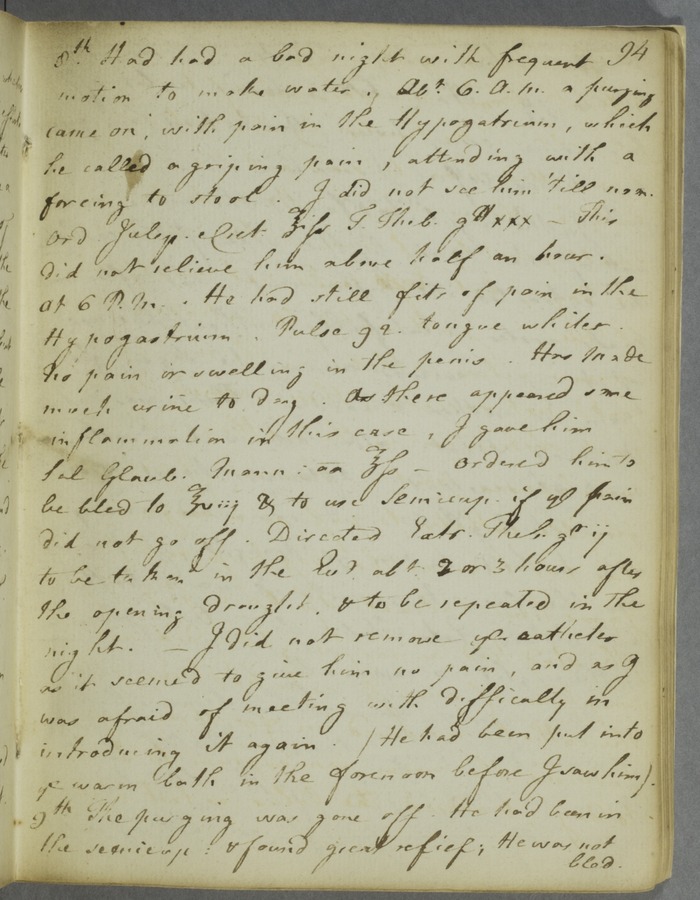 94
8th Had had a bad night with frequent
motion to make water. Abt. 6. A.m. a purging
came on, with pain in the Hypogatrium, which
he called a griping pain, attending with a
forcing to stool. I did not see him 'till noon.
Ord Julep. e Cret ℥iſs T. Theb. gtt xxx - This
did not relieve him above half an hour.
at 6 P.m. He had still fits of pain in the
Hypogastrium. Pulse 92. tongue whiter.
No pain or swelling in the penis. Has made
much urine to day. As there appeared some
inflammation in this case, I gave him
Sal Glaub. Mann: aa ℥ſs - ordered him to
be bled to ℥viij & to use Semicup. if ye pain
did not go off. Directed Extr. Theb. gr ij
to be taken in the Eve. abt. 2 or 3 hours after
the opening draught, & to be repeated in the
night. — I did not remove ye catheter
as it seemed to give him no pain, and as I
was afraid of meeting with difficulty in
introducing it again. (He had been put into
ye warm bath in the forenoon before I saw him).
9th The purging was gone off. He had been in
the semicup: & found great relief; He was not
bled.